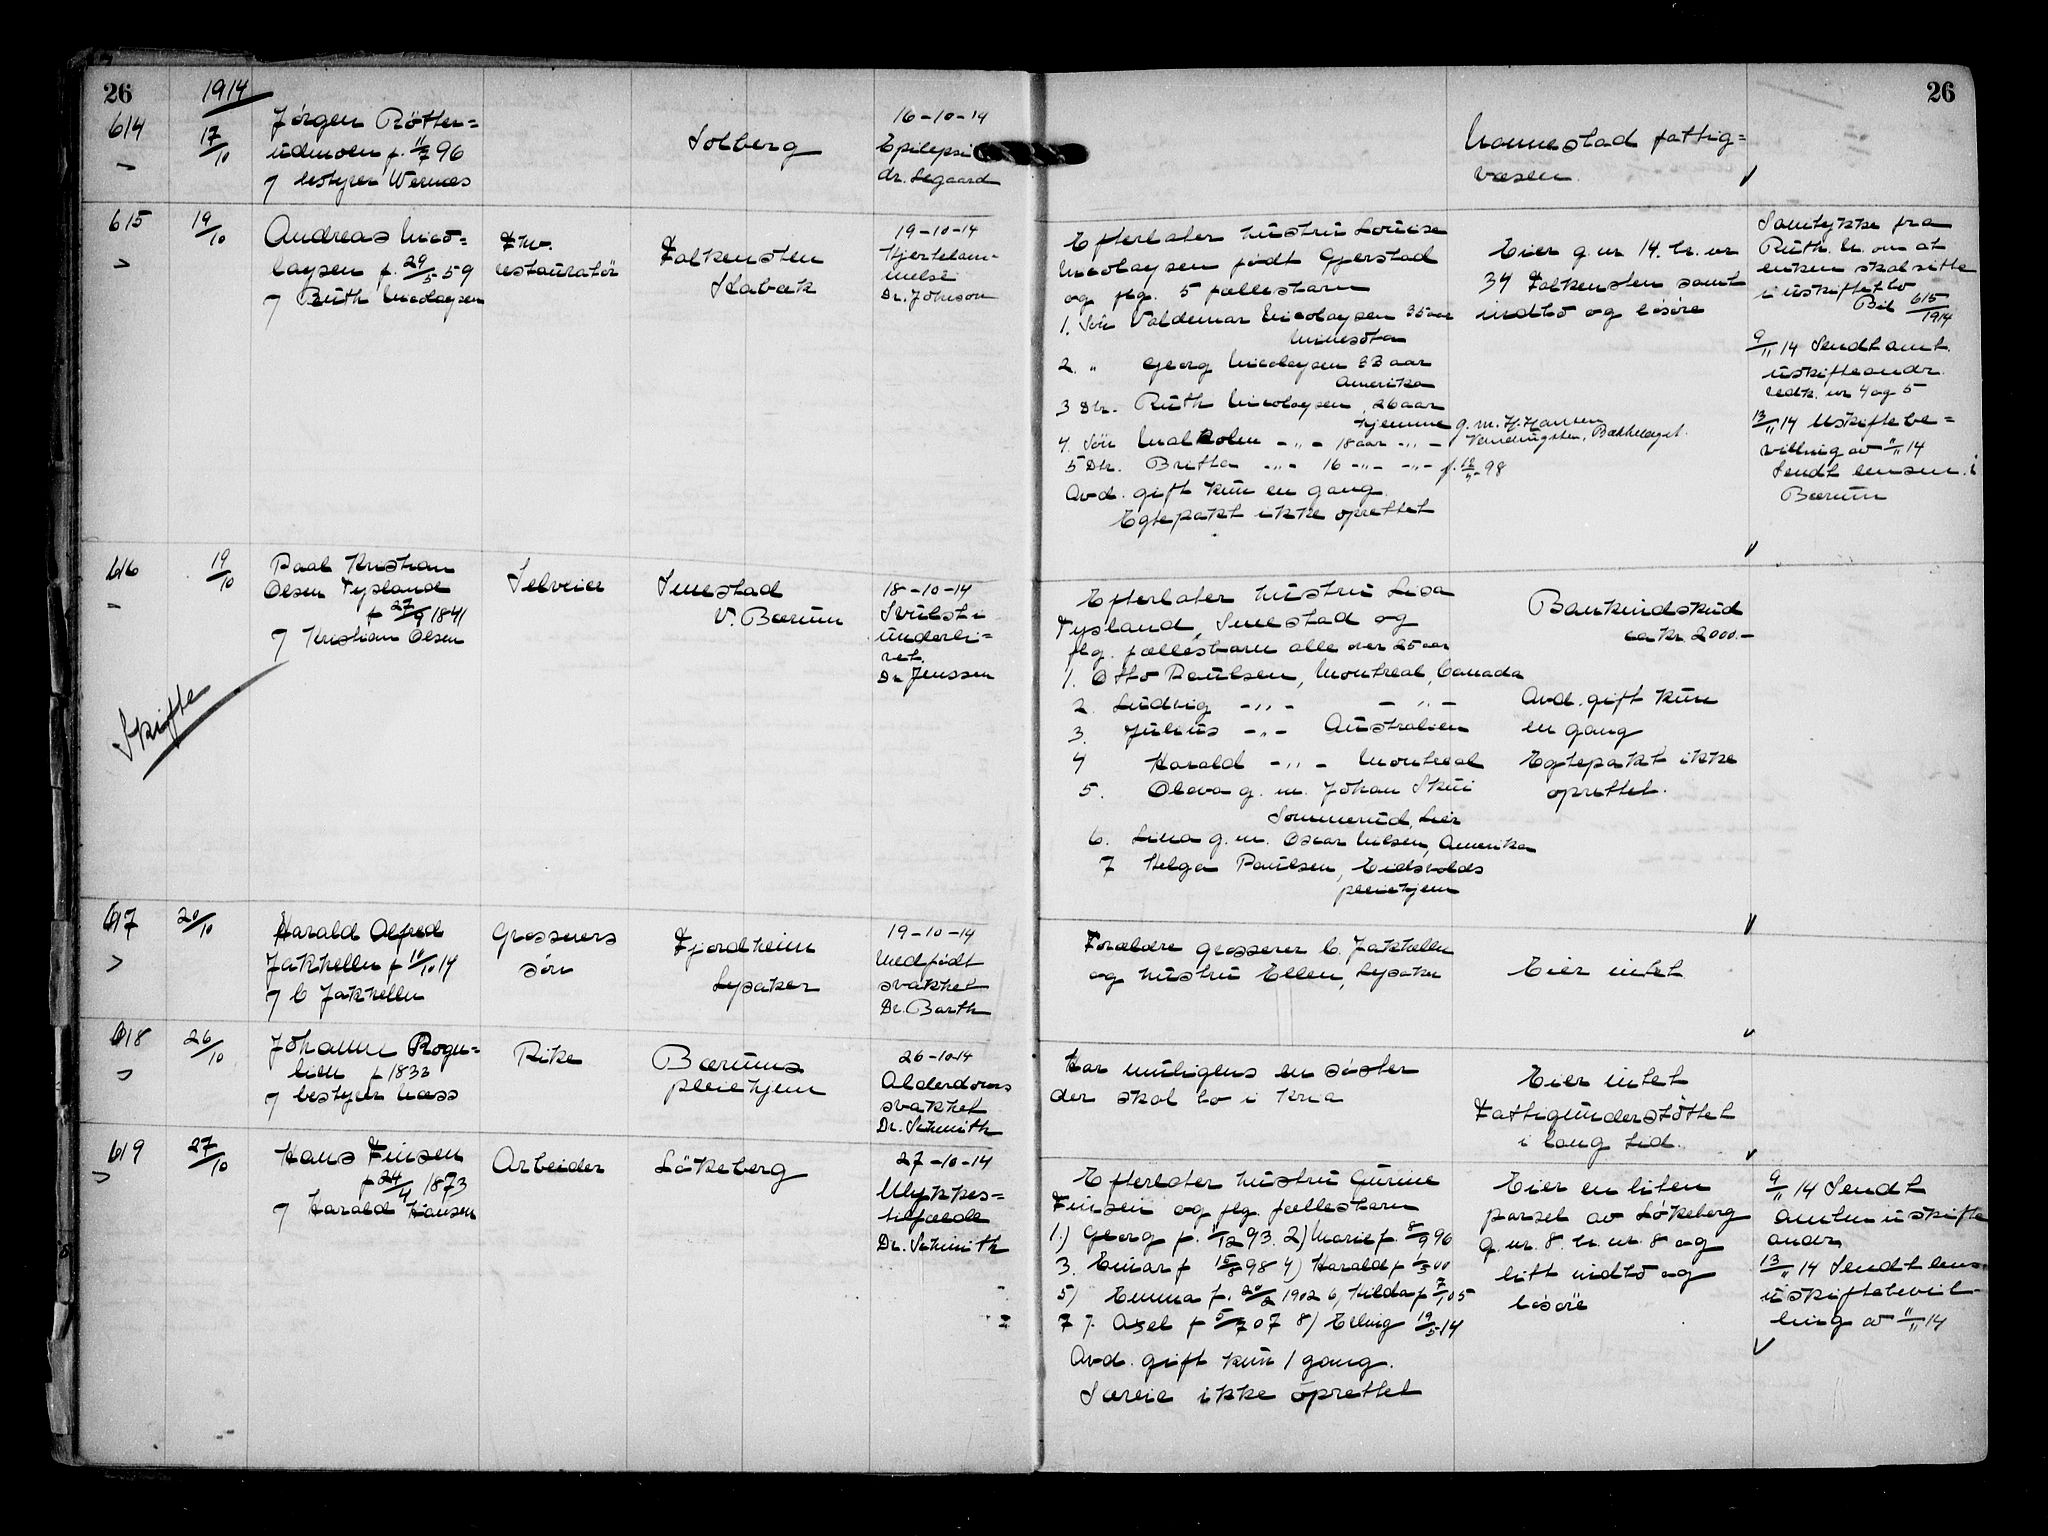 26
1914
26
614
17/10
Jørgen Røtter=
udmoen f. 11/7 96
7 bestyrer Wernæs
Solberg
16-10-14
Epilepsi
dr. Segaard
Nannestad fattig=
væsen.
615
19/10
Andreas Nico=
laysen f. 29/5 59
7 Ruth Nicolaysen
Fhv.
restauratør
Falkensten
Stabæk
19-10-14
Hjertelam-
melse
Dr. Johnson
Efterlater hustru Louise
Nicolaysen født Gjerstad
og flg. 5 fællesbarn
1. Søn Valdemar Nicolaysen 35 aar
Minesota
2. " Georg Nicolaysen 33 aar
Amerika
3 Dtr. Ruth Nicolaysen, 26 aar
hjemme g. m. H. Hansen
4. Søn Malkolm -"- 18 aar -"- Bækkelaget.
5 Dtr. Britta -"- 16 -"- -"- f. 12/5 98
Avd. gift kun en gang.
Egtepakt ikke oprettet
Eier g. nr 14. br. nr
34 Falkensten samt
indbo og løsøre
Samtykke fra
Ruth N. om at
enken skal sitte
i uskiftet bo
Bil 615/1914
9/11 14 Sendt amt.
uskifteandr.
vedk. nr 4 og 5
13/11 14 Uskiftebe=
villing av 11/11 14
Sendt lensm. i
Bærum
616
19/10
Paal Kristian
Olsen Tysland
f 27/9 1841
7 Kristian Olsen
Skifte
Selveier
Sinestad
V. Bærum
18-10-14
Svulst i
underli=
vet.
Dr Jenssen
Efterlater hustru Lisa
Tysland, Sinestad og
flg. fællesbarn alle over 25 aar
1. Otto Paulsen, Montreal, Canada
2. Ludvig -"- -"-
3. Julius -"- Australien
4 Harald -"- Montreal
5. Olava g. m. Johan Skui
Sommerud, Lier
6. Lina g. m. Oscar Nilsen, Amerika
7 Helga Paulsen, Eidsvolds
pleiehjem
Bankindskud
ca kr. 2000.-
Avd. gift kun
en gang
Egtepakt ikke
oprettet.
617
20/10
Harald Alfred
Jakhelln f 10/10 14
7 C Jakhelln
Grosserers
søn
Fjordheim
Lysaker
19-10-14
Medfødt
svakhet
Dr. Barth
Forældre grosserer C. Jakhelln
og hustru Ellen, Lysaker
Eier intet
618
26/10
Johanne Rogn=
lien f 1833
7 bestyrer Næss
Pike
Bærums
pleiehjem
26-10-14
Alderdoms
svakhet
Dr. Schmith
Har muligens en søster
der skal bo i Kria
Eier intet
Fattigunderstøttet
i lang tid.
619
27/10
Hans Finsen
f 24/4 1873
7 Harald Hansen
Arbeider
Løkeberg
27-10-14
Ulykkes=
tilfælde
Dr. Schmith
Efterlater hustru Gurine
Finsen og flg. fællesbarn
1.) Georg f. 1/12 93. 2) Marie f. 8/9 96
3. Einar f 15/8 98 4) Harald f 1/3 00
5) Emma f. 20/2 1902 6, Hilda f 7/1 05
7 ). Axel f 5/7 07 8) Erling 19/5 14
Avd. gift kun 1 gang.
Særeie ikke oprettet
Eier en liten
parsel av Løkeberg
g. nr. 8. br. nr. 8 og
litt indbo og
løsøre
9/11 14 Sendt
amtm uskifte
andr.
13/11 14 Sendt lens
uskiftebevil-
ling av 11/11 14